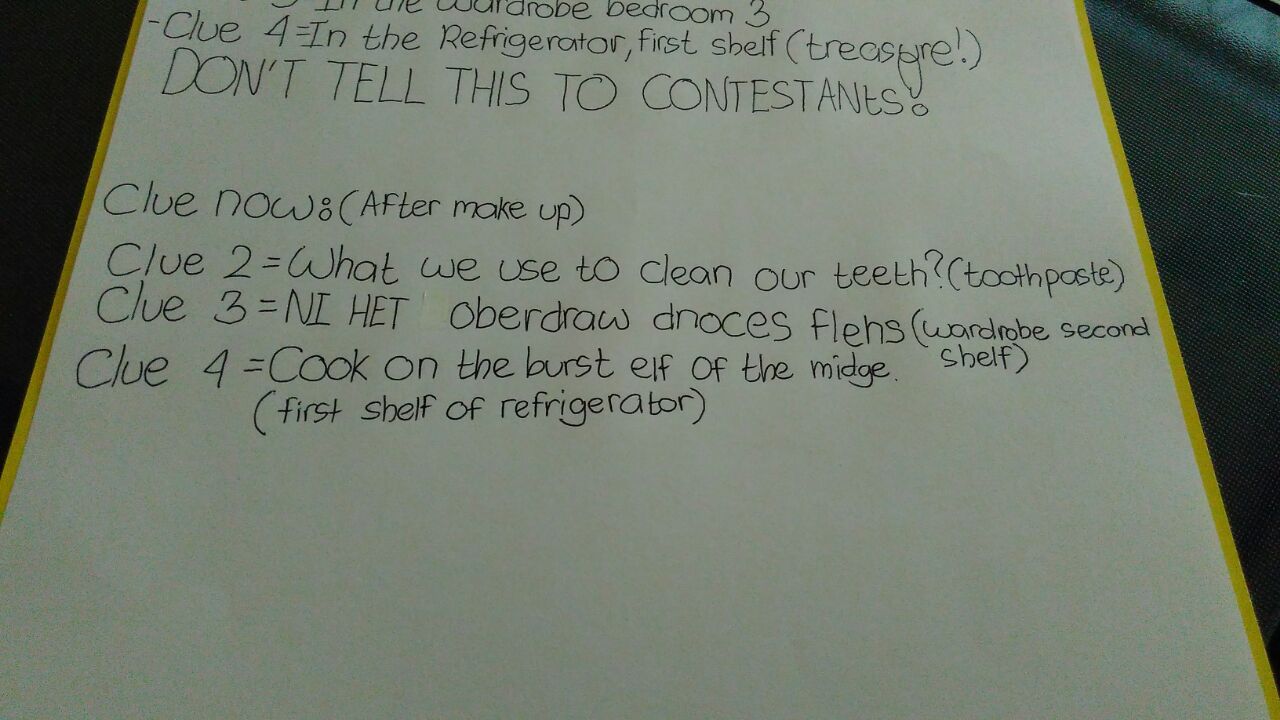 In the wardrobe bedroom 3
-Clue 4=In the Refrigerator, first shelf (treasure!)
DON'T TELL THIS TO CONTESTANTS!
Clue now:(After make up)
Clue 2=What we use to clean our teeth?(toothpaste)
Clue 3=NI HET oberdraw dnoces flehs (wardrobe second
shelf)
Clue 4=Cook on the burst elf of the midge.
(first shelf of refrigerator)